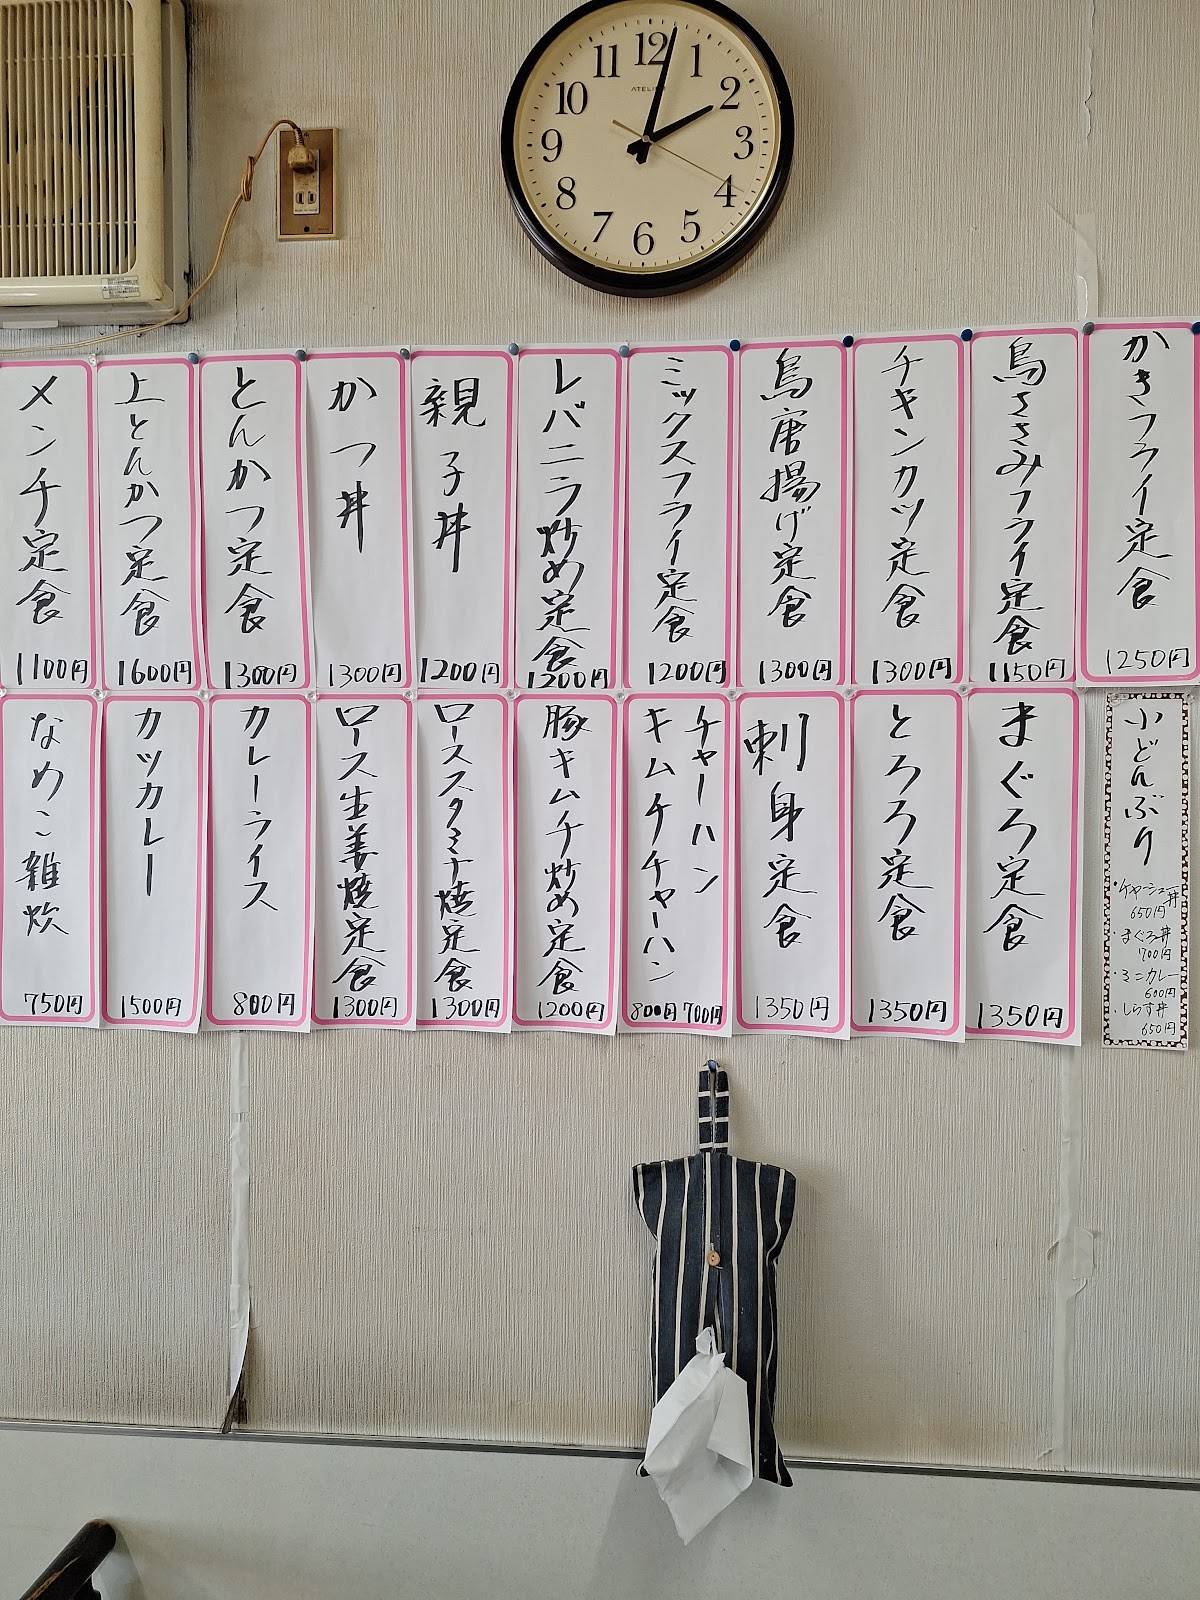 12
1
2
3
4
5
6
7
8
9
10
11
かきフライ定食
1250円
鳥ささみフライ定食
1150円
チキンカツ定食
1300円
鳥唐揚げ定食
1300円
ミックスフライ定食
1200円
レバニラ炒め定食
1200円
親子丼
1200円
かつ丼
1300円
とんかつ定食
1300円
上とんかつ定食
1600円
メンチ定食
1100円
小どんぶり
・チャーシュー丼
650円
・まぐろ丼
700円
・ミニカレー
600円
・しらす丼
650円
まぐろ定食
1350円
とろろ定食
1350円
刺身定食
1350円
チャーハン
700円
キムチチャーハン
800円
豚キムチ炒め定食
1200円
ローススタミナ焼定食
1300円
ロース生姜焼定食
1300円
カレーライス
800円
カツカレー
1500円
なめこ雑炊
750円